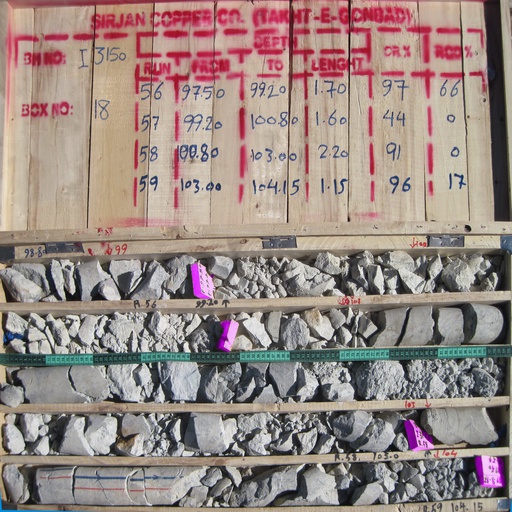 SIRJAN COPPER CO. (TAKHT-E-GONBAD)
BH NO: I 3150
DEPTH
RUN FROM TO LENGHT CR.% RQD%
56 97.50 99.20 1.70 97 66
BOX NO: 18
57 99.20 100.80 1.60 44 0
58 100.80 103.00 2.20 91 0
59 103.00 104.15 1.15 96 17
99
R.56
103
R.58 103.0
104
R.59 104.15